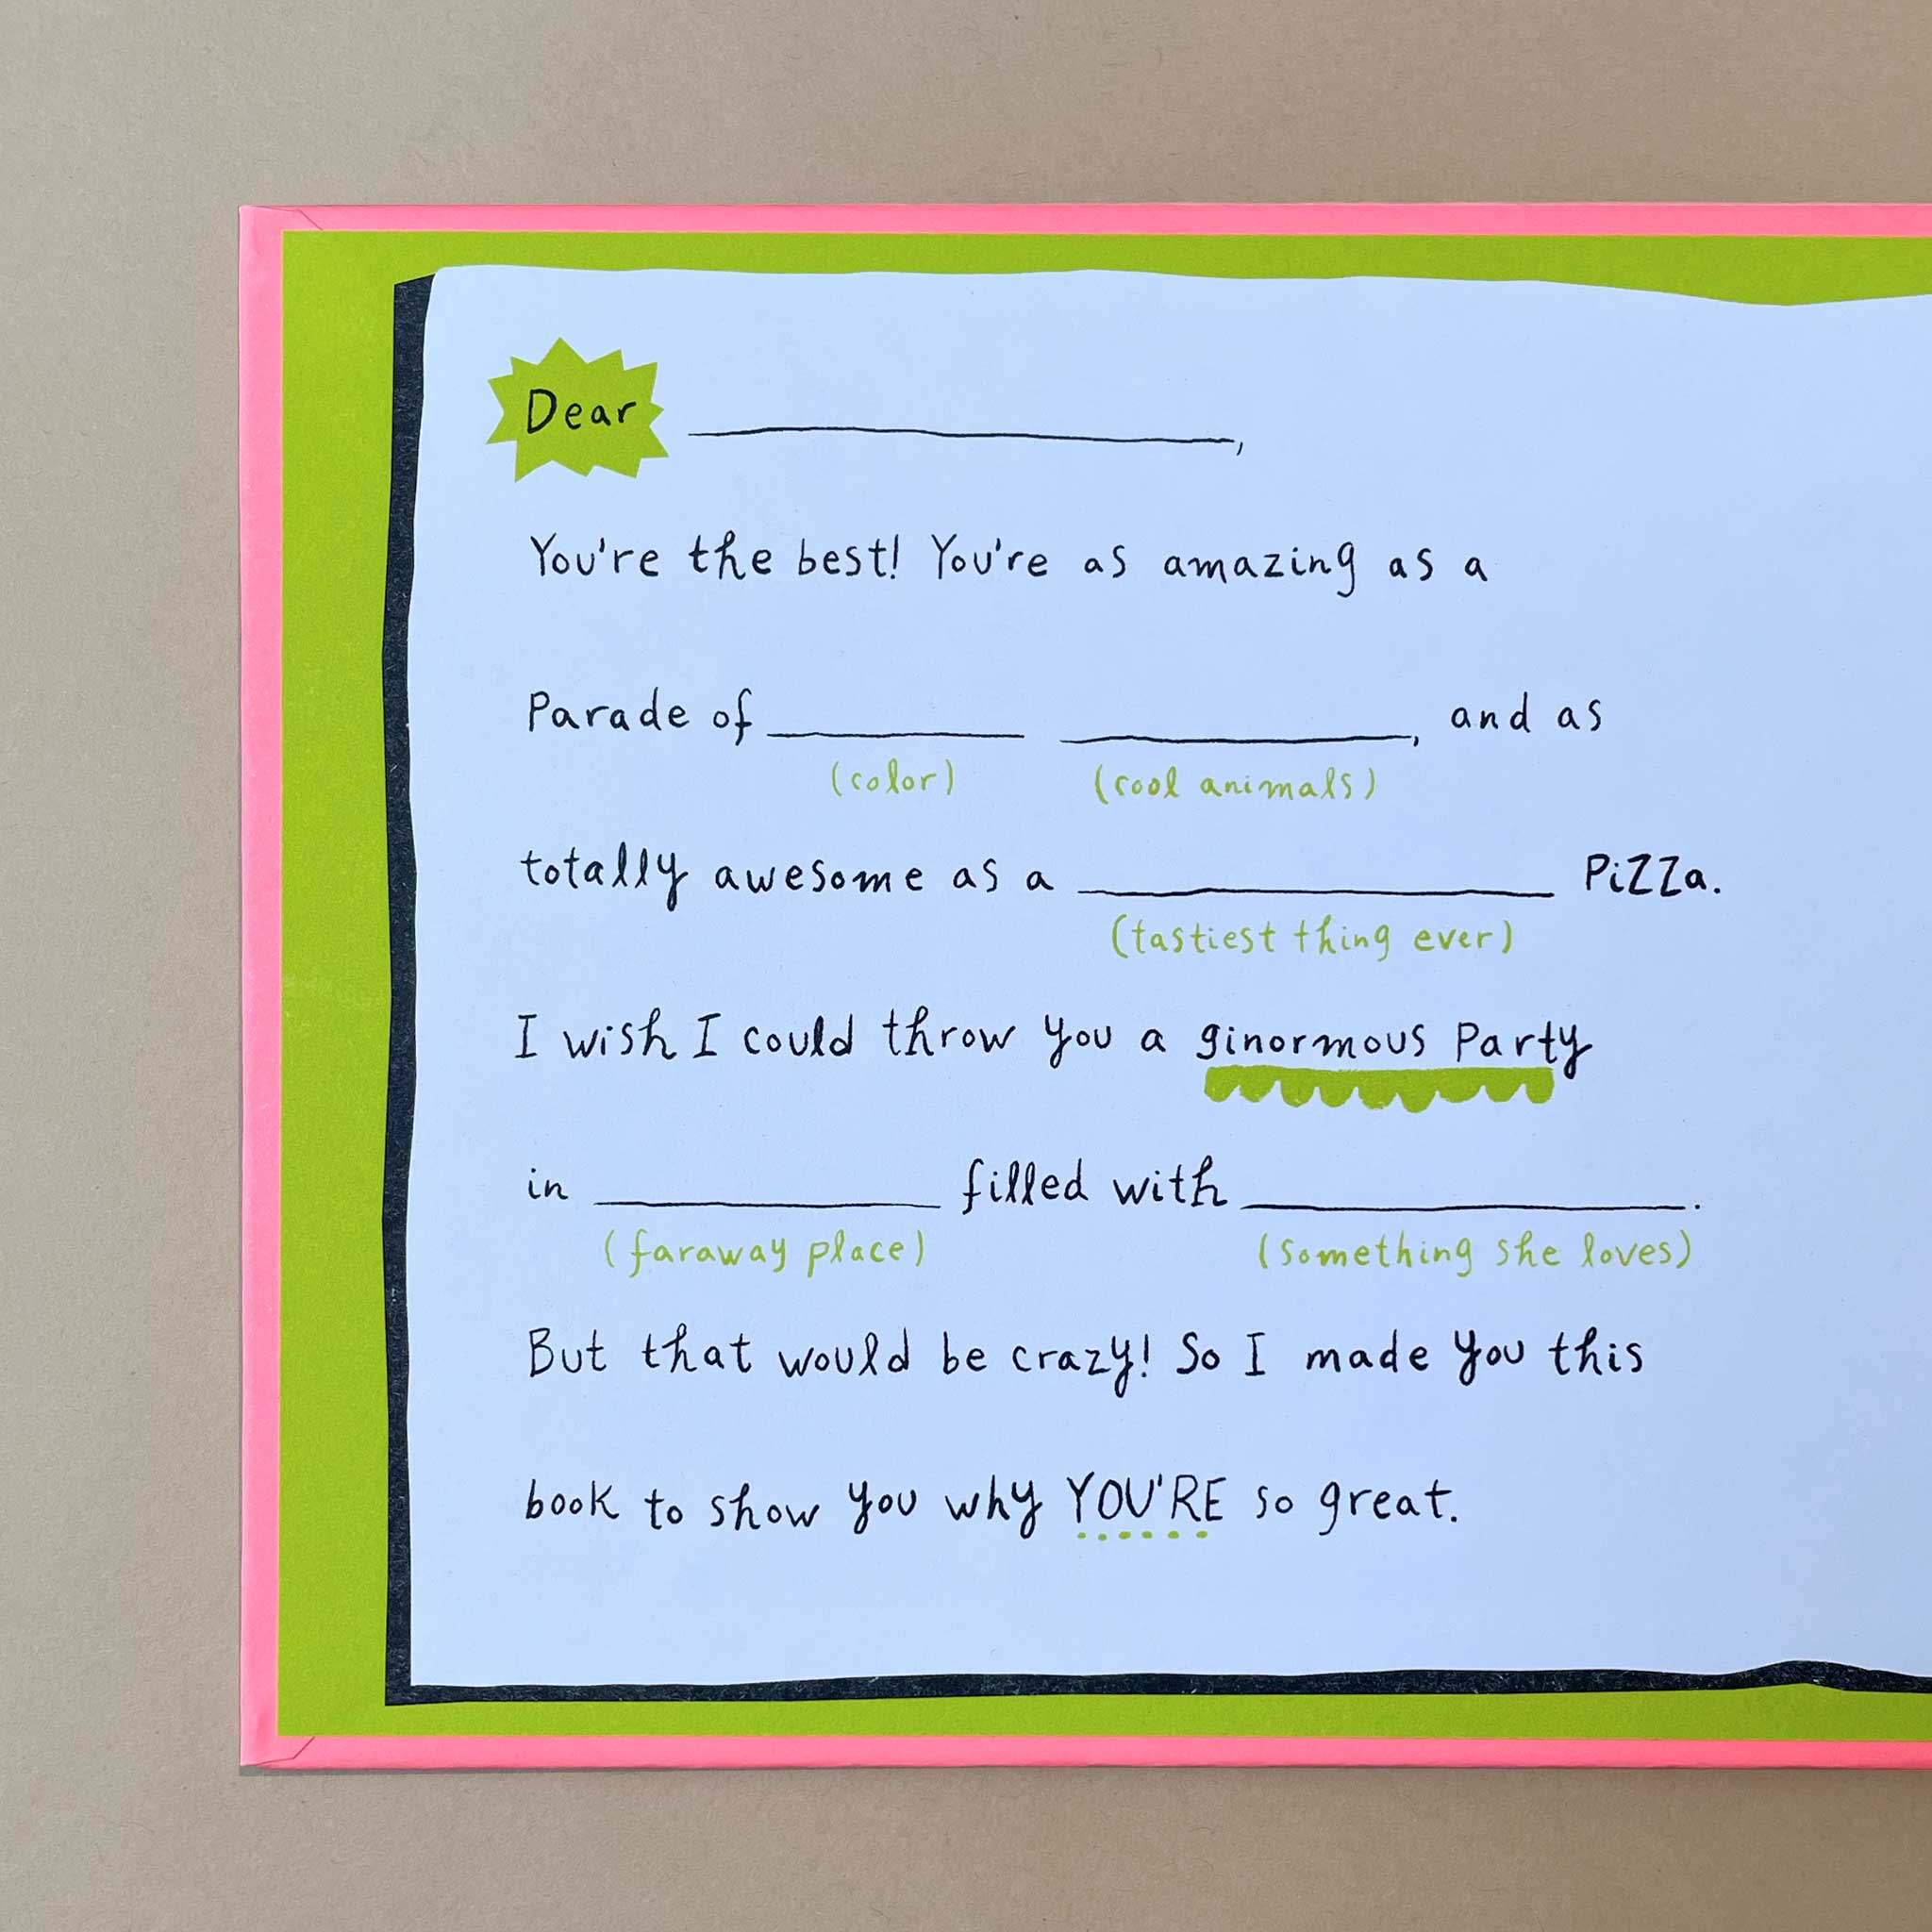 Dear ____________,
You're the best! You're as amazing as a
Parade of ________ ________, and as
(color) (cool animals)
totally awesome as a ____________ PiZZa.
(tastiest thing ever)
I wish I could throw you a ginormous Party
in ________ filled with ____________.
(faraway place) (something she loves)
But that would be crazy! So I made you this
book to show you why YOU'RE so great.